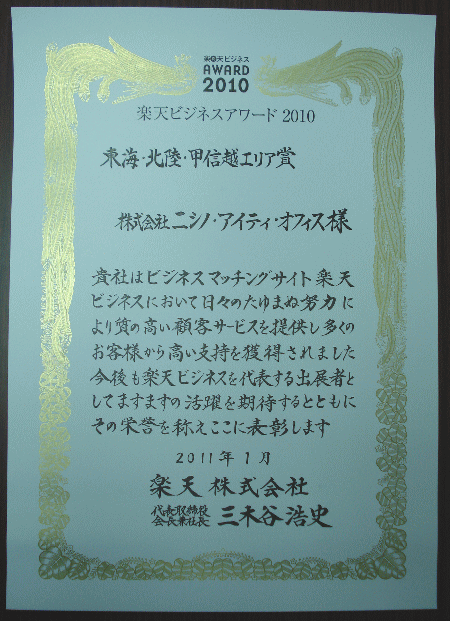 楽天ビジネス
AWARD
2010
楽天ビジネスアワード 2010
東海・北陸・甲信越エリア賞
株式会社ニシノ・アイティ・オフィス様
貴社はビジネスマッチングサイト楽天
ビジネスにおいて日々のたゆまぬ努力に
より質の高い顧客サービスを提供し多くの
お客様から高い支持を獲得されました
今後も楽天ビジネスを代表する出展者と
してますますの活躍を期待するとともに
その栄誉を称えここに表彰します
2011年1月
楽天株式会社
代表取締役
会長兼社長 三木谷浩史